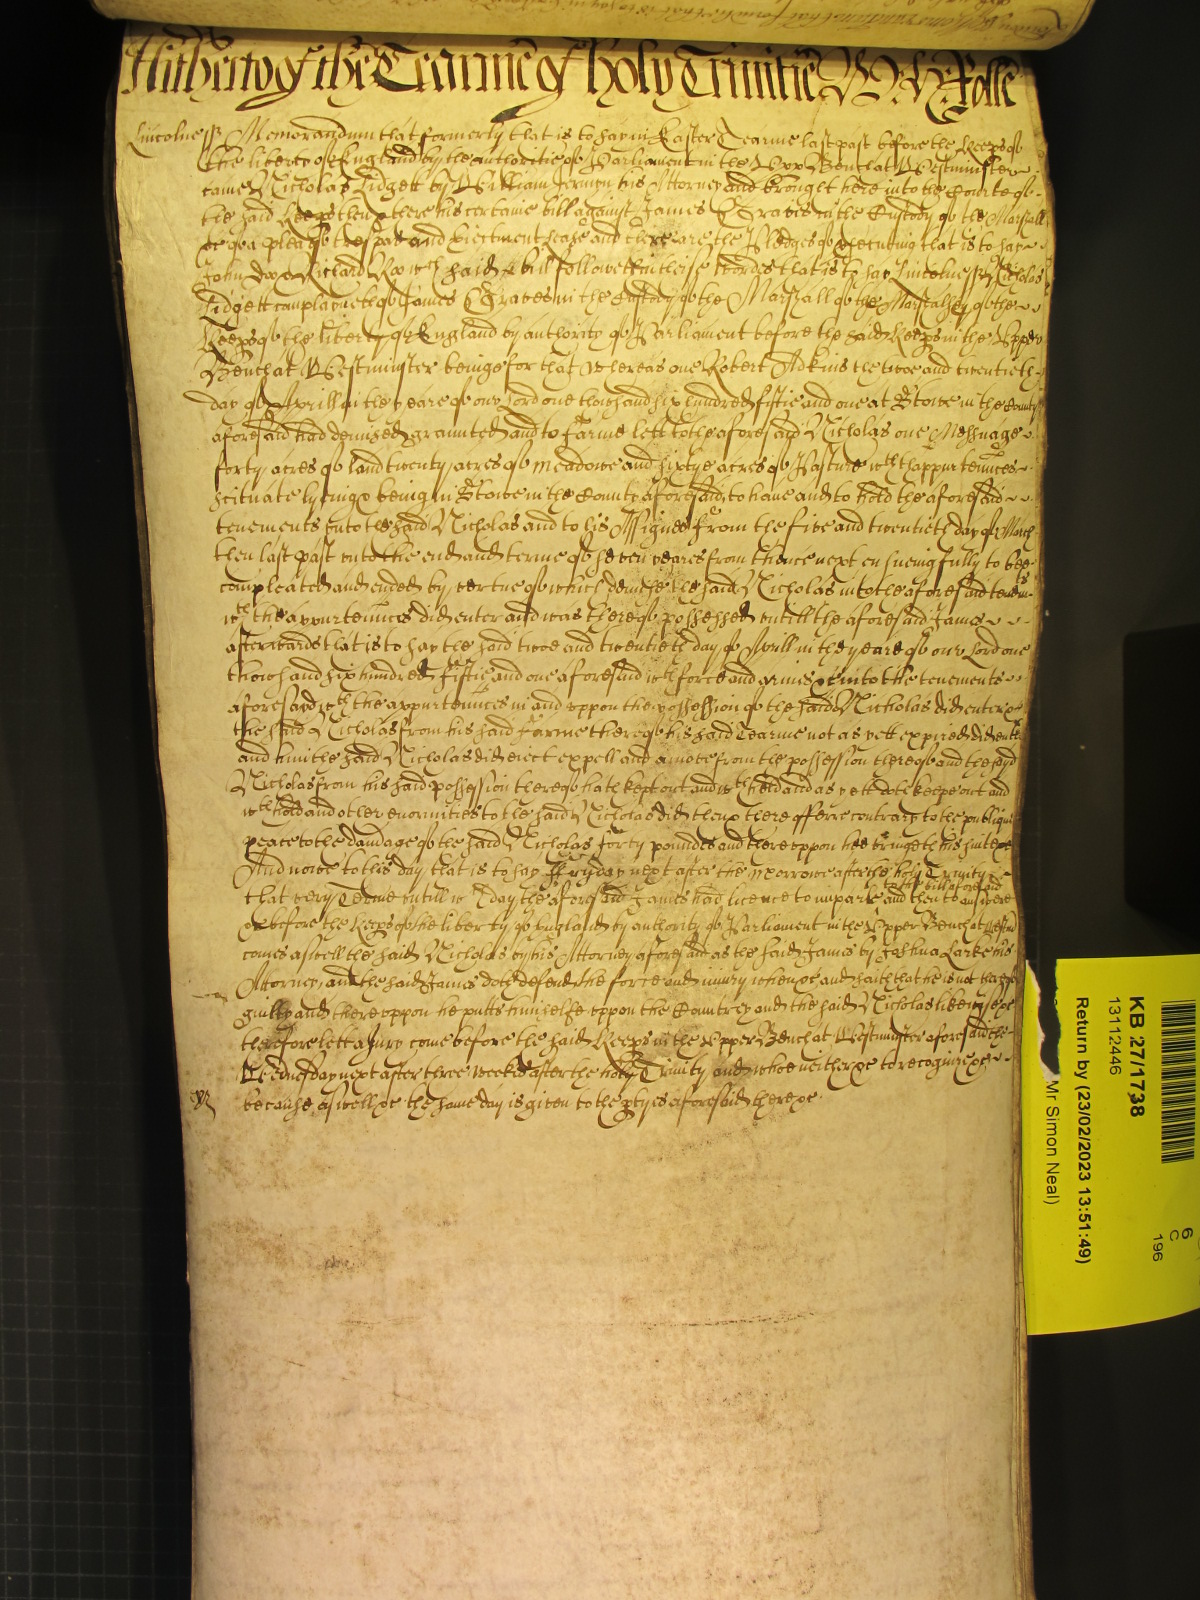 Hitherto of the Tearme of holy Trinitie Rolle
Lincolne ss Memorandum that formerly that is to say in Easter Tearme last past before the Keeps of
the liberty of England by the authoritie of Parliament in the Upp Bench at Westminster
came Nicholas Lidgett by William Jermyn his Attorney and brought here into the Courte of
the said Keeps then & there his certaine bill against James Graves in the Custody of the Marshall
&c of a plea of trespas and eiectment &c and there are the Pledges of psecuting that is to say
John Doo & Richard Roo wch said bill followeth in theise wordes that is to say Lincolne ss Nicholas
Lidgett complayneth of James Graves in the Custody of the Marshall of the Marshalsey of the
Keeps of the liberty of England by authority of Parliament before the said Keeps in the Upper
Bench at Westminster beinge for that Whereas one Robert Adkins the twoe and twentieth
day of Aprill in the yeare of our Lord one thowsand six hundred fiftie and one at Stowe in the County
aforesaid had demised graunted and to farme lett to the aforesaid Nicholas one Messuage
forty acres of land twenty acres of meadowe and sixtye acres of Pasture wth thappurtennces
scituate lyeinge & being in Stowe in the County aforesaid to have and to hold the aforesaid
tenements unto the said Nicholas and to his Assignes from the five and twentieth day of March
then last past unto the end and terme of seven yeares from thence next ensueing fully to bee
compleated and ended by vertue of which demise the said Nicholas into the aforesaid tenemts
wth the appurtennces did enter and was thereof possessed untill the aforesaid James
afterwards that is to say the said twoe and twentieth day of Aprill in the yeare of our Lord one
thowsand six hundred fiftie and one aforesaid wth force and armes &c into the tenements
aforesaid wth the appurtennces in and uppon the possession of the said Nicholas did enter &
the said Nicholas from his said farme thereof his said Tearme not as yett expired did eiect
and him the said Nicholas did eiect expell and amove from the possession thereof and the sayd
Nicholas from his said possession thereof hath kept out and wthheld and as yett doth keepe out and
wthhold and other enormities to the said Nicholas did then & there offerre contrary to the publique
peace to the damage of the said Nicholas forty poundes and thereuppon hee bringeth his suite &c
And nowe to this day that is to say Fryday next after the morrowe after the holy Trinity
that very Terme untill wch day the aforesaid James had licence to imparle to the bill aforesaid and then to answere
&c before the Keeps of the liberty of England by authority of Parliament in the Upper Bench at Westmr
comes aswell the said Nicholas by his Attorney aforesaid as the said James by Joshua Larke his
Attorney and the said James doth defend the force and iniury when &c and saith that he is not thereof
guilty and thereuppon he putts himselfe uppon the Countrey and the said Nicholas likewise &c
therefore lett a Jury come before the said Keeps in the Upper Bench at Westminster aforesaid the
Wednesday next after three weekes after the holy Trinity and whoe neither &c to recognize &c
because aswell &c the same day is given to the ptyes aforesaid there &c
KB 27/1738
13112446
Return by (23/02/2023 13:51:49)
Mr Simon Neal)
6
C
196